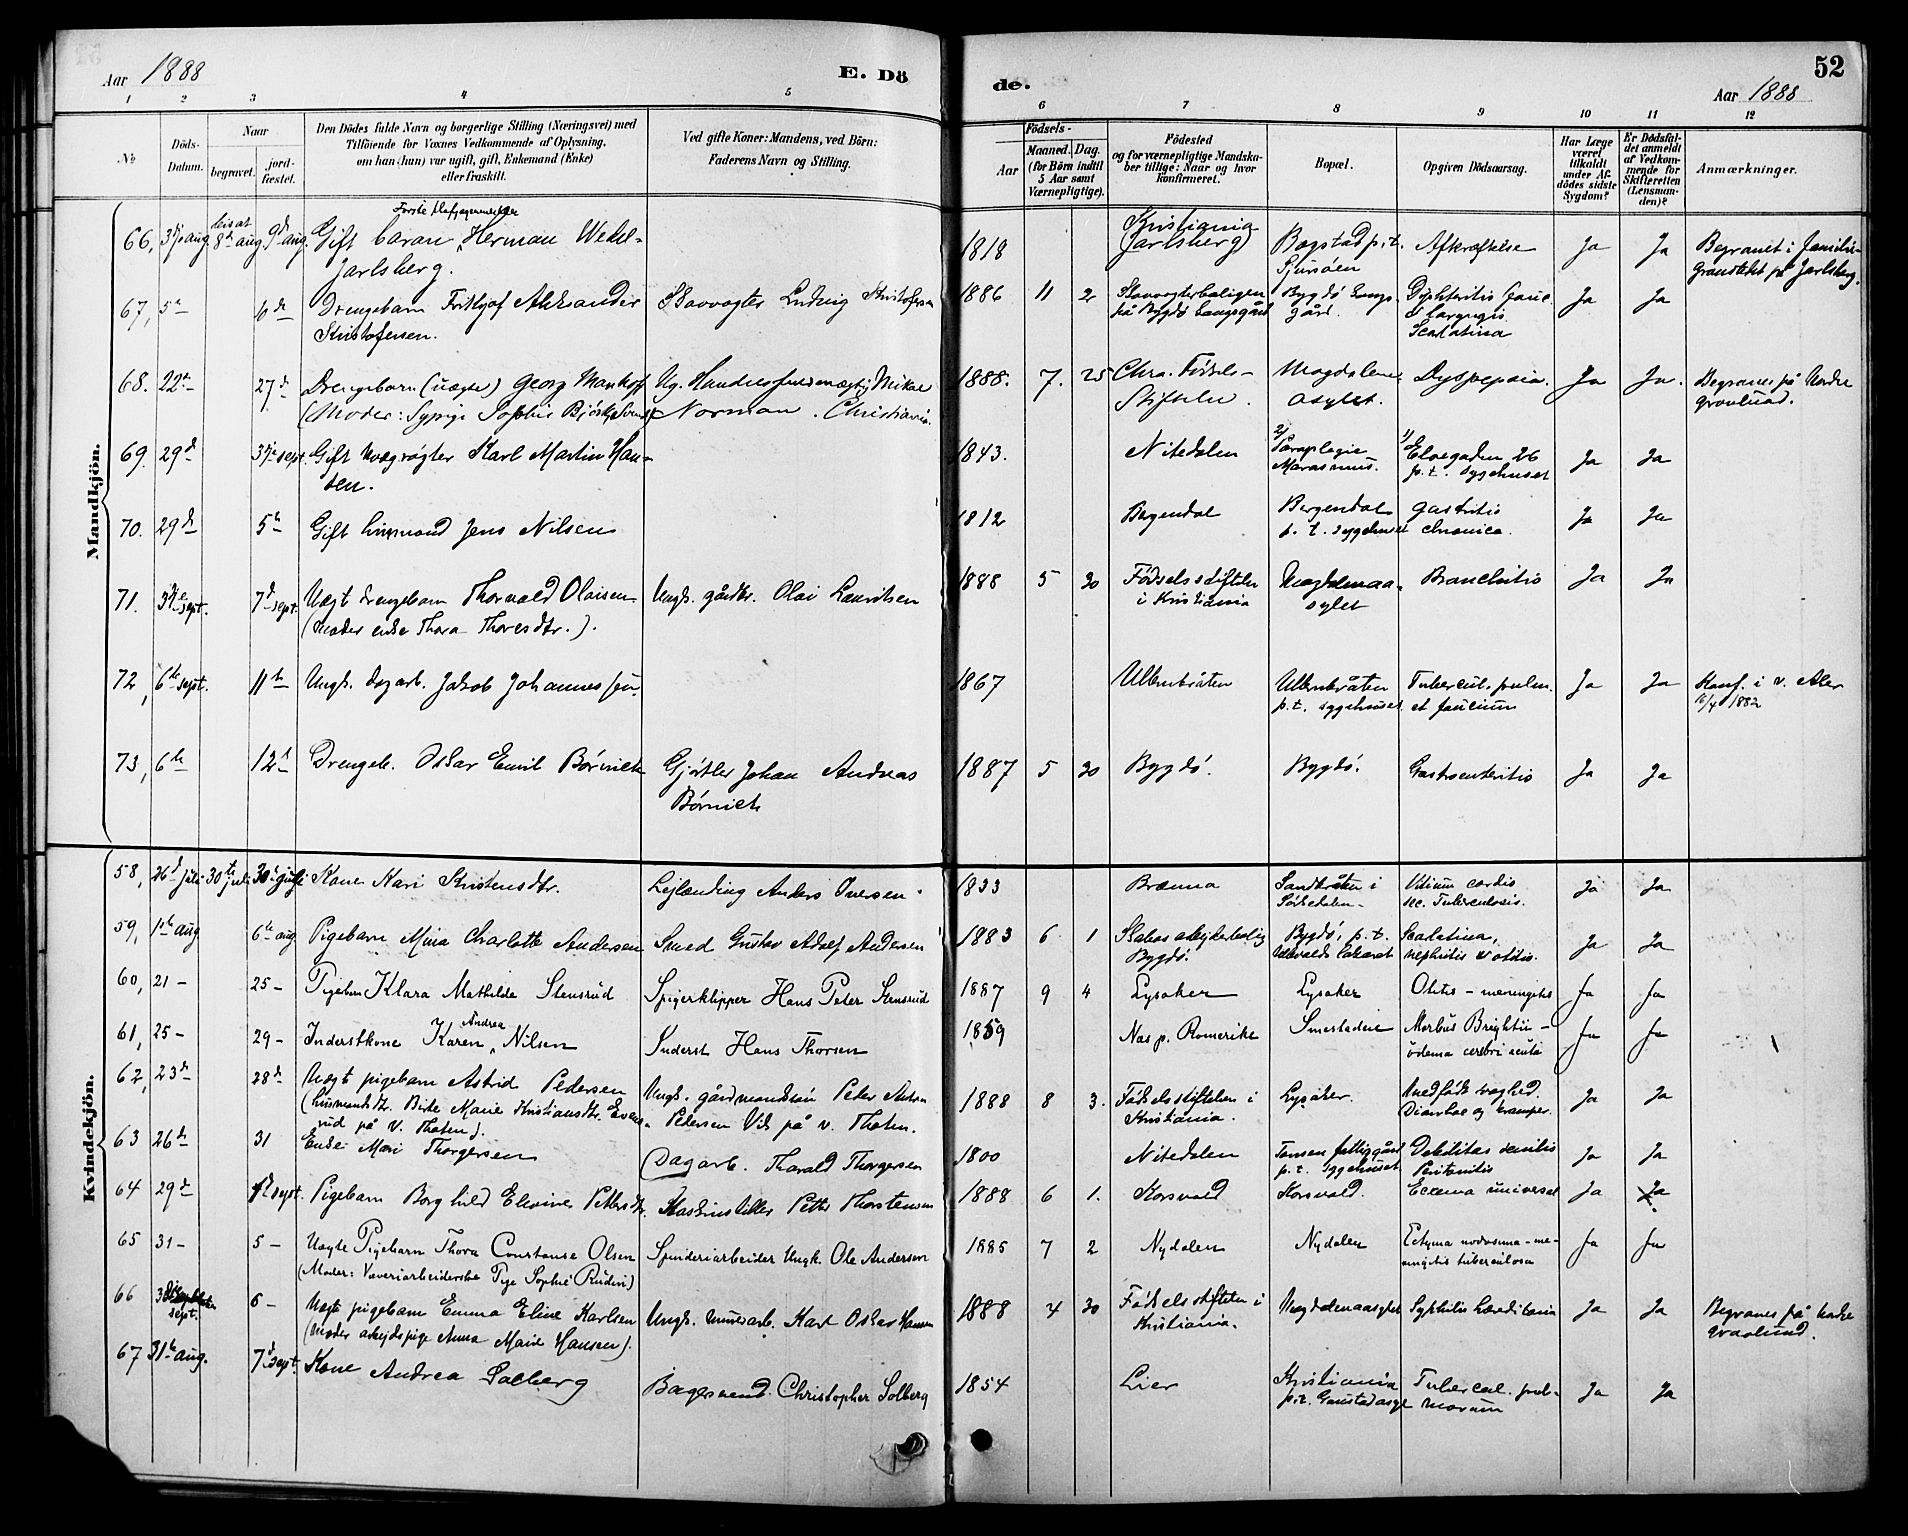 Aar 1888
E. Dö
de.
52
Aar 1888
1 2 3 4 5 6 7 8 9 10 11 12
№
Döds-Datum.
Naar
begravet.
jord-fæstet.
Den Dödes fulde Navn og borgerlige Stilling (Næringsvei) med
Tilföiende for Voxnes Vedkommende af Oplysning,
om han (hun) var ugift, gift, Enkemand (Enke)
eller fraskilt.
Ved gifte Koner: Mandens, ved Börn:
Faderens Navn og Stilling.
Födsels-
Aar
Maaned. Dag.
(for Börn indtil
5 Aar samt
Værnepligtige).
Födested
og for værnepligtige Mandska-
ber tillige: Naar og hvor
konfirmeret.
Bopæl.
Opgiven Dödsaarsag.
Har Læge
været
tilkaldt
under Af-
dödes sidste
Sygdom?
Er Dödsfal-
det anmeldt
af Vedkom-
mende for
Skifteretten
(Lensman-
den)?
Anmærkninger.
Mandkjön.
66, 3die aug. 8de aug. 9de aug. Gift baron Herman Wedel-
Jarlsberg. 1818 Kristiania
(Jarlsberg) Bogstad p.t.
Sjursöen Afkræftelse Ja Ja Begravet i familie-
gravstedet på Jarlsberg.
67, 5te 6te Drengebarn Frithjof Aleksander
Kristofersen. Skovvogter Ludvig Kristofersen 1886 11 2 Skovvogterboligen
på Bygdö kongsgård Bygdö kongs-
gård. Dyphteritis fauc.
& laryngis
Scarlatina Ja Ja
68. 22de 27de Drengebarn (uægte) Georg
(Moder: Sypige Sophie Norman. Christiania. 1888. 7. 25 Chra. Födsels-
Stiftelse. Magdalene
Asylet. Dyspepsia. Ja Ja. Begraves på Nordre
gravlund.
69. 29de 3die sept. Gift Karl Martin Han-
sen. 1843. Nitedalen 2) Paraplegie
Marasmus. 1) Elvegaden 26
p.t. sygehuset Ja Ja
70. 29de 5te Gift husmand Jens Nilsen 1812 Bergendal
p.t. sygehuset gastritis
chronica. Ja Ja
71. 3die sept. 7de sept. Uægt drengebarn Thorvald Olaisen
(Moder enke Thora Thoresdtr.). Ungk. gårdbr. Olai Lauritsen 1888 5 30 Födselsstiftelsen
i Kristiania Magdalenaa-
sylet Bronchitis Ja Ja
72, 6te sept. 11te Ungk. dagarb. Jakob Johannessen. 1867 Ullernbråten Ullernbråten
p.t. sygehuset Tubercul. pulm.
et faucium Ja Ja Konf. i v. Aker
/4 1882
73, 6te 12te Drengeb. Oskar Emil Börnich Gjörtler Johan Andreas
Börnich 1887 5 30 Bygdö. Bygdö. Gastroenteritis Ja Ja
Kvindekjön.
58, 26de juli 30te juli 30te juli Kone Kari Kristensdtr. Leilænding Anders Iversen. 1833 Brænna Sandbråten i
Sörkedalen Vitium cordis
sec. Tuberculosis. Ja Ja
59, 1ste aug 6te aug Pigebarn Mina Charlotte Andersen Smed Gustav Adolf Andersen 1883 6 1 arbejderbolig
Bygdö. Bygdö, p.t.
Ullevolds lazaret Scarlatina,
nephritis & otitis. Ja Ja
60, 21 - 25 - Pigebarn Klara Mathilde Stensrud Spigerklipper Hans Peter Stensrud 1887 9 4 Lysaker Lysaker Otitis - meningitis Ja Ja
61, 25 - 29 - Inderstkone Karen Andrea Nilsen Inderst Hans Thorsen 1859 Næs p. Romerike Smestadeie Morbus Brightii -
ödema cerebri acuta Ja Ja
62, 23de 28de Uægt pigebarn Astrid Pedersen
(husmandsdtr. Birte Marie Kristiansdtr. Evens-
rud på V. Thoten). Ungk. gårdmandssön Peter Anton
Pedersen på v. Thoten. 1888 8 3. Födselsstiftelsen i
Kristiania. Lysaker. Medfödt svaghed.
Diarrhoe og kramper. Ja Ja
63 26de 31 Enke Mari Thorgersen (Dagarb. Tharald Thorgersen 1800 Nitedalen Tonsen fattiggård
p.t. Sygehuset Debilitas senilis
Peritonitis Ja Ja
64 29de 1ste sept. Pigebarn Borghild Elvine Pettersdtr. Petter Thorstensen 1888 6 1. Korsvold Korsvold. Eczema universal Ja Ja
65 31 - 5 - Uægte Pigebarn Thora Constanse Olsen
(Moder: Væveriarbeiderske Pige Sophie Rudin) Spinderiarbeider Ungk. Ole Andersen 1885 7 2 Nydalen Nydalen -me-
ningitis tuberculosa Ja Ja
66 sept. 6 - Uægt pigebarn Emma Eline Karlsen
(Moder arbejdspige Anna Marie Hansen). Ungk. murerarb. Karl Oskar Hansen 1888 4 30 Födselsstiftelsen i
Kristiania. Magdalenaasylet Syphilis hereditaria Ja Ja Begraves på Nordre
Gravlund.
67 31te aug. 7de sept. Kone Andrea Solberg Bagersvend Christopher Solberg 1854 Lier Kristiania
p.t. Gaustadasyl Tubercul. pul-
monum Ja Ja